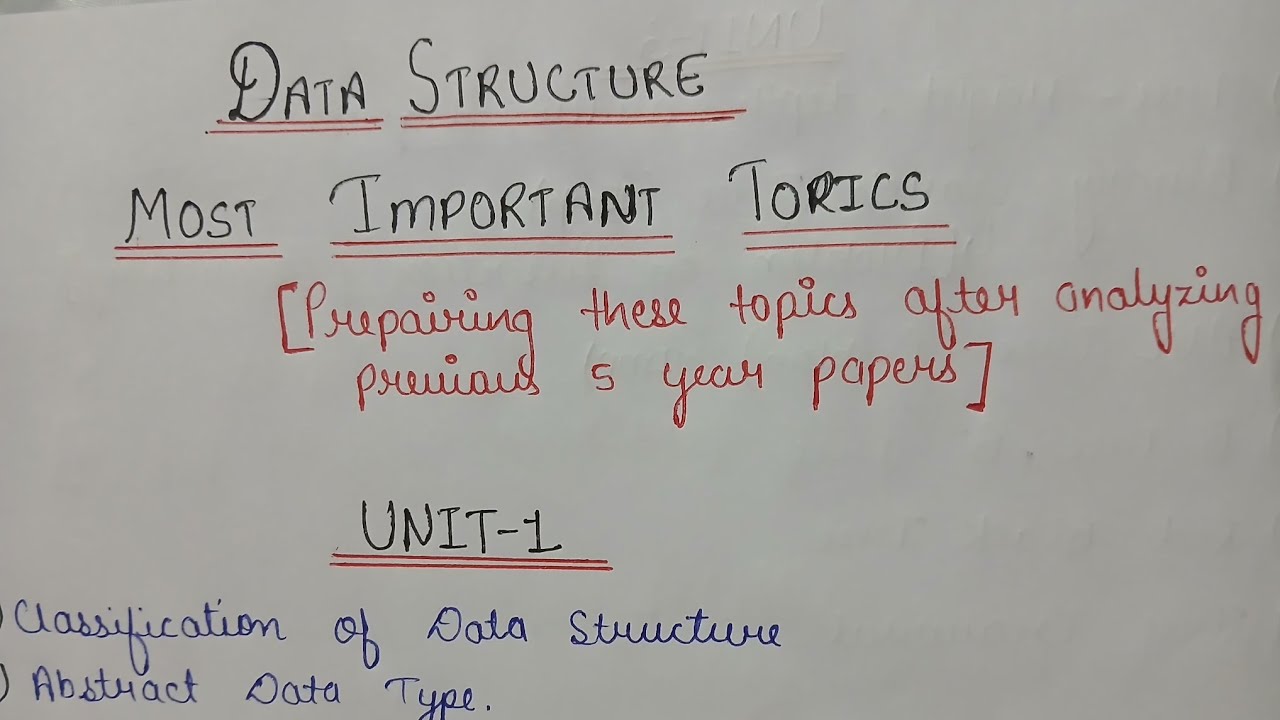 DATA STRUCTURE
MOST IMPORTANT TOPICS
[Prepairing these topics after analyzing
previous 5 year papers]
UNIT-1
) Classification of Data Structure
) Abstract Data Type.